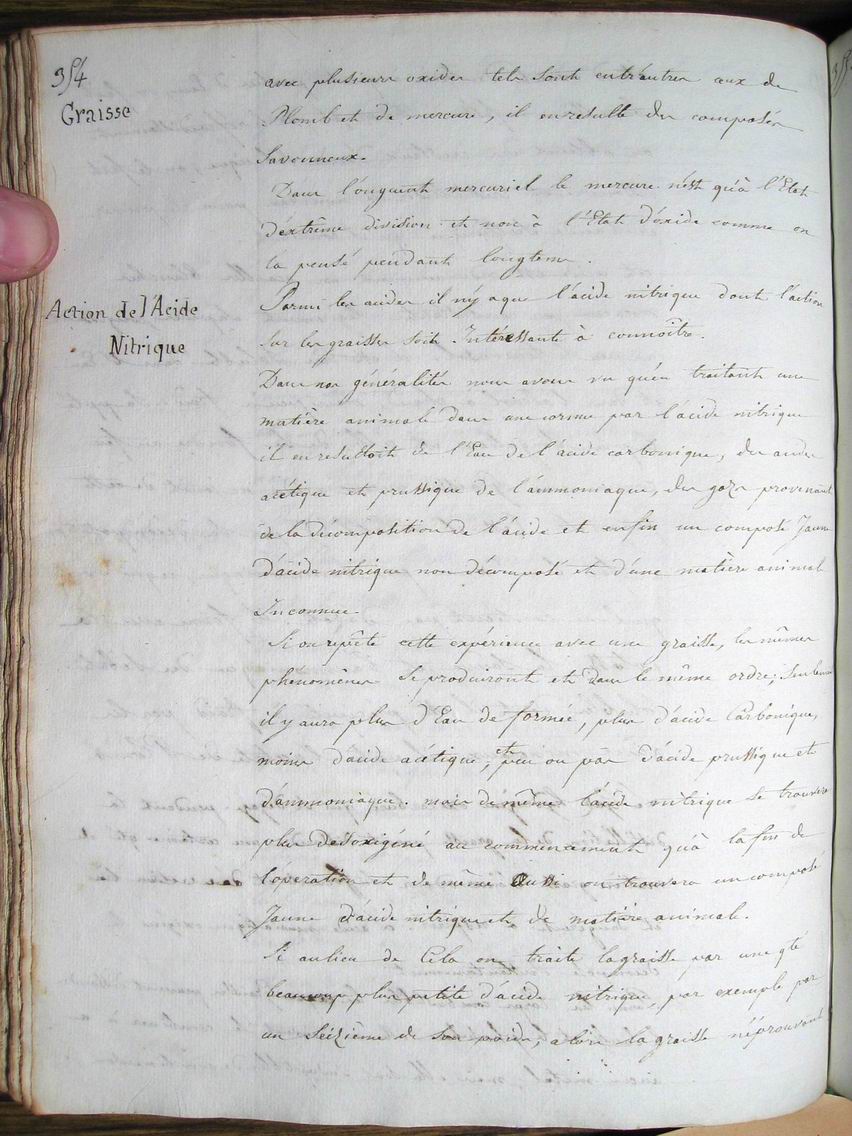 354
Graisse
avec plusieurs oxides tels sont entr'autres ceux de
Plomb et de mercure, il en resulte des composés
Savonneux.
Dans l'onguent mercuriel le mercure n'est qu'à l'Etat
d'extrême division et non à l'Etat d'oxide comme on
la pensé pendant longtems.
Action de l'Acide
Nitrique
Parmi les acides il n'y a que l'acide nitrique dont l'action
sur les graisses soit Intéressante à connoître.
Dans nos généralités nous avons vu qu'en traitant une
matière animale dans une cornue par l'acide nitrique
il en resultoit de l'Eau de l'acide carbonique, des acides
acétique et prussique de l'ammoniaque, des gazs provenant
de la décomposition de l'acide et enfin un composé Jaune
d'acide nitrique non décomposé et d'une matière animal
Inconnue.
Si on repête cette expérience avec une graisse, les mêmes
phénomènes se produiront et dans le même ordre; Seulement
il y aura plus d'Eau de formée, plus d'acide Carbonique,
moins d'acide acétique, et peu ou pas d'acide prussique et
d'ammoniaque. mais de même l'acide nitrique se trouvera
plus desoxigéné au commencement qu'à la fin de
l'operation et de même Aussi on trouvera un composé
Jaune d'acide nitrique et de matière animale.
Si au lieu de Cela on traite la graisse par une qté
beaucoup plus petite d'acide nitrique, par exemple par
un Seizième de son poids, alors la graisse n'éprouvant